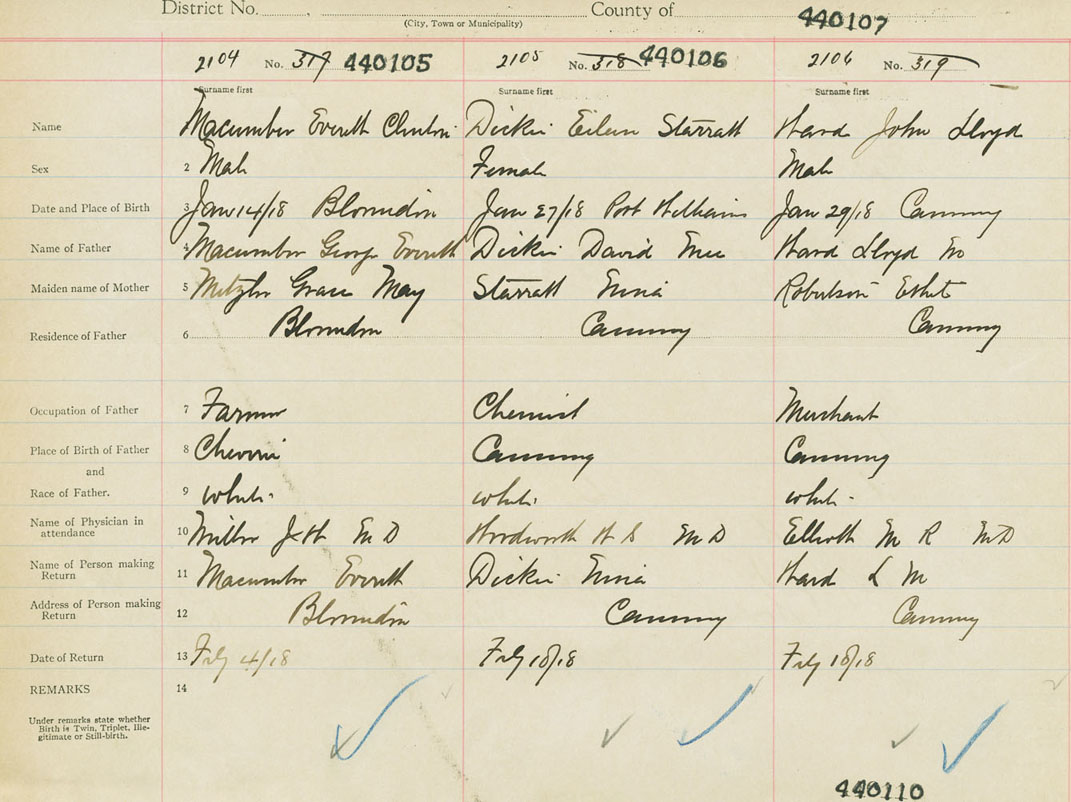 District No. County of
(City, Town or Municipality)
440107
2104 No. 317 440105 2105 No. 318 440106 2106 No. 319
Surname first Surname first Surname first
Name Macumber Everett Clinton Dickie Eileen Starratt Hand John Lloyd
Sex 2 Male Female Male
Date and Place of Birth 3 Jan 14/18 Blomidon Jan 27/18 Port Williams Jan 29/18 Canning
Name of Father 4 Macumber George Everett Dickie David Hand Lloyd M
Maiden name of Mother 5 Metzler Grace May Starratt Robertson Ethel
Residence of Father 6 Blomidon Canning Canning
Occupation of Father 7 Farmer Chemist Merchant
Place of Birth of Father 8 Cheverie Canning Canning
and
Race of Father. 9 white white white
Name of Physician in
attendance 10 Miller J H M D Woodworth H S M D Elliott M R M D
Name of Person making
Return 11 Macumber Everett Dickie Hand L M
Address of Person making
Return 12 Blomidon Canning Canning
Date of Return 13 Feby 4/18 Feby 18/18 Feby 18/18
REMARKS 14
Under remarks state whether
Birth is Twin, Triplet, Ille-
gitimate or Still-birth.
440110